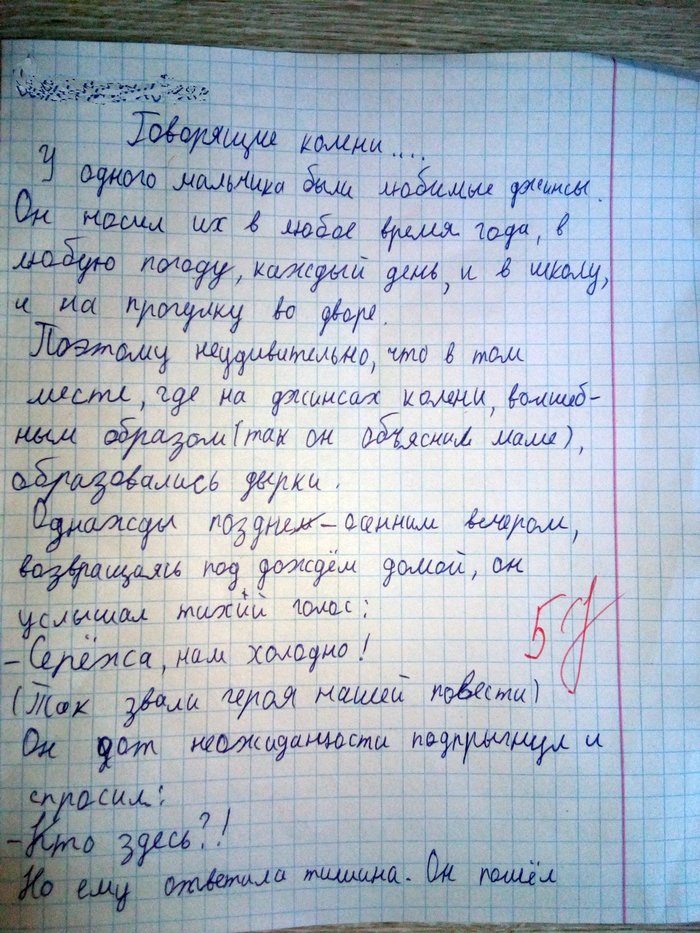 Говорящие колени....
У одного мальчика были любимые джинсы.
Он носил их в любое время года, в
любую погоду, каждый день, и в школу,
и на прогулку во дворе.
Поэтому неудивительно, что в том
месте, где на джинсах колени, волшеб-
ным образом (так он объяснил маме),
образовались дырки.
Однажды поздне-осенним вечером,
возвращаясь под дождём домой, он
услышал тихий голос:
5
- Серёжа, нам холодно!
(Так звали героя нашей повести)
Он от неожиданности подпрыгнул и
спросил:
- Кто здесь?!
Но ему ответила тишина. Он пошёл